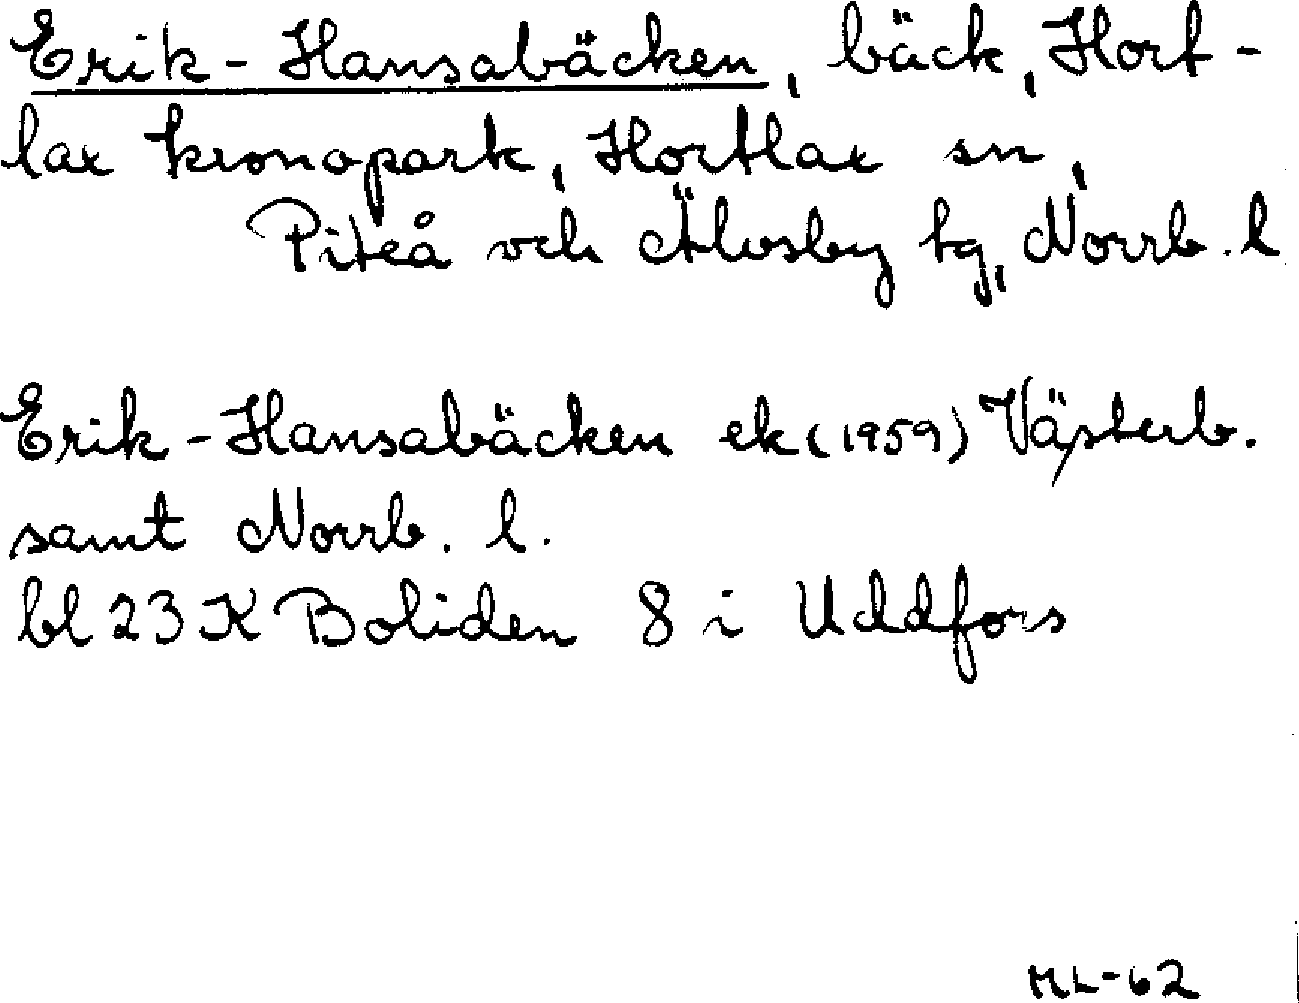 Erik-Hansabäcken, bäck, Hort-
lax kronopark, Hortlax sn,
Piteå och Älvsby tg, Norrb. l
Erik-Hansabäcken ek (1959) Västerb.
samt Norrb. l.
bl 23 K Boliden 8 i Uddfors
ML-62